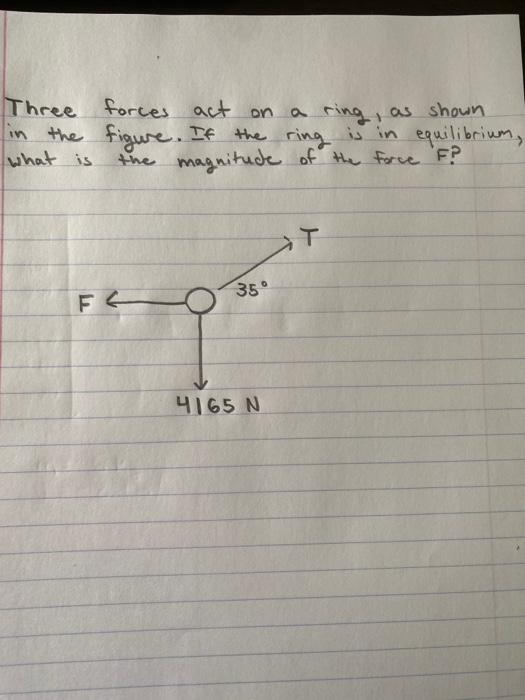 Three forces act on a ring, as shown
in the figure. If the ring is in equilibrium,
what is the magnitude of the force F?
T
35°
F
4165 N